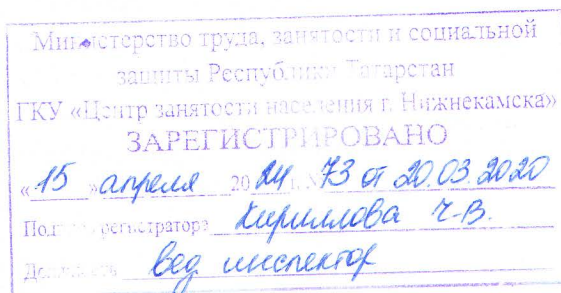 Министерство труда, занятости и социальной
защиты Республики Татарстан
ГКУ «Центр занятости населения г. Нижнекамска»
ЗАРЕГИСТРИРОВАНО
«15» апреля 2024 г. № 73 от 20.03.2020
Подпись регистратора Кириллова Ч.В.
Должность вед инспектор